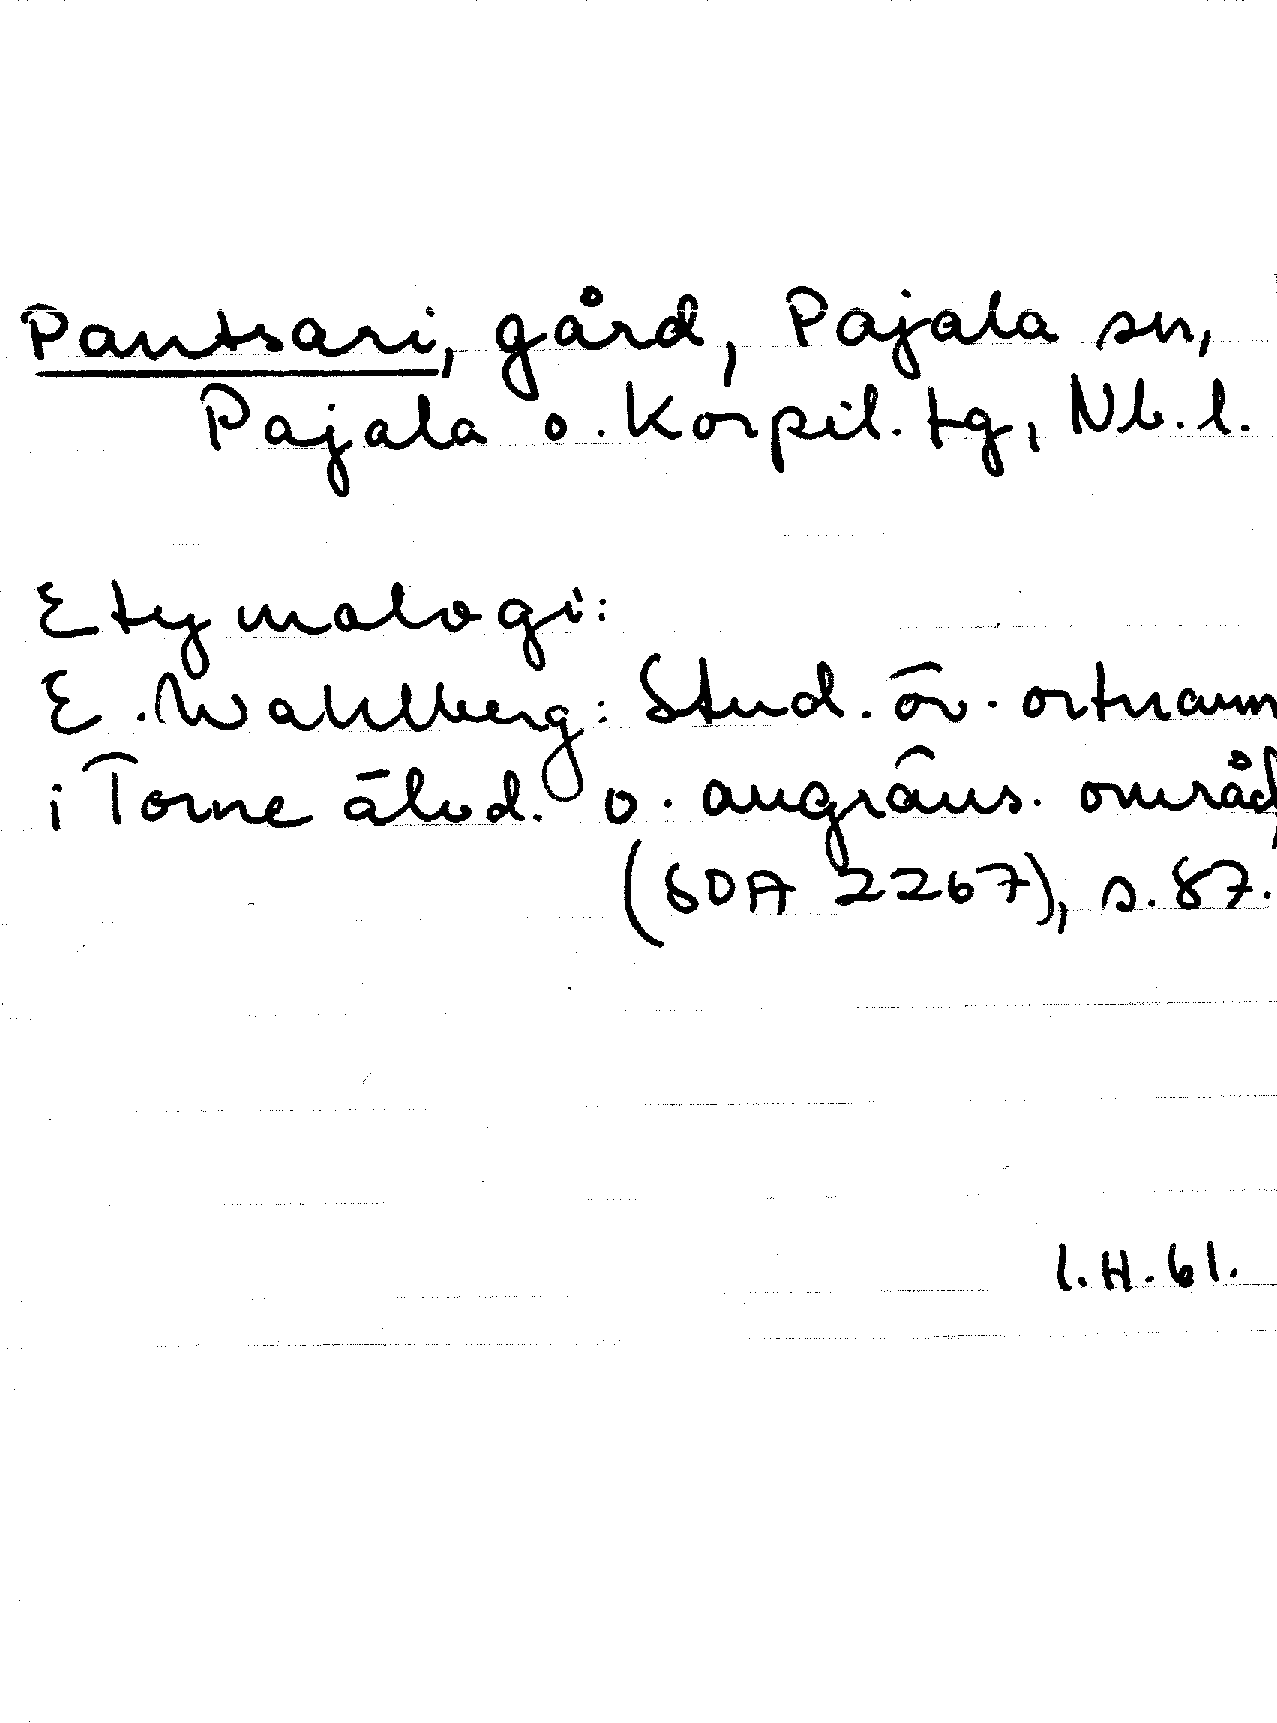 Pantsari, gård, Pajala sn,
Pajala o. Korpil. tg, Nb. l.
Etymologi:
E. Wahlberg: Stud. öv. ortnamn
i Torne älvd. o. angräns. områd
(SOA 2267), s. 87.
I. H. 61.